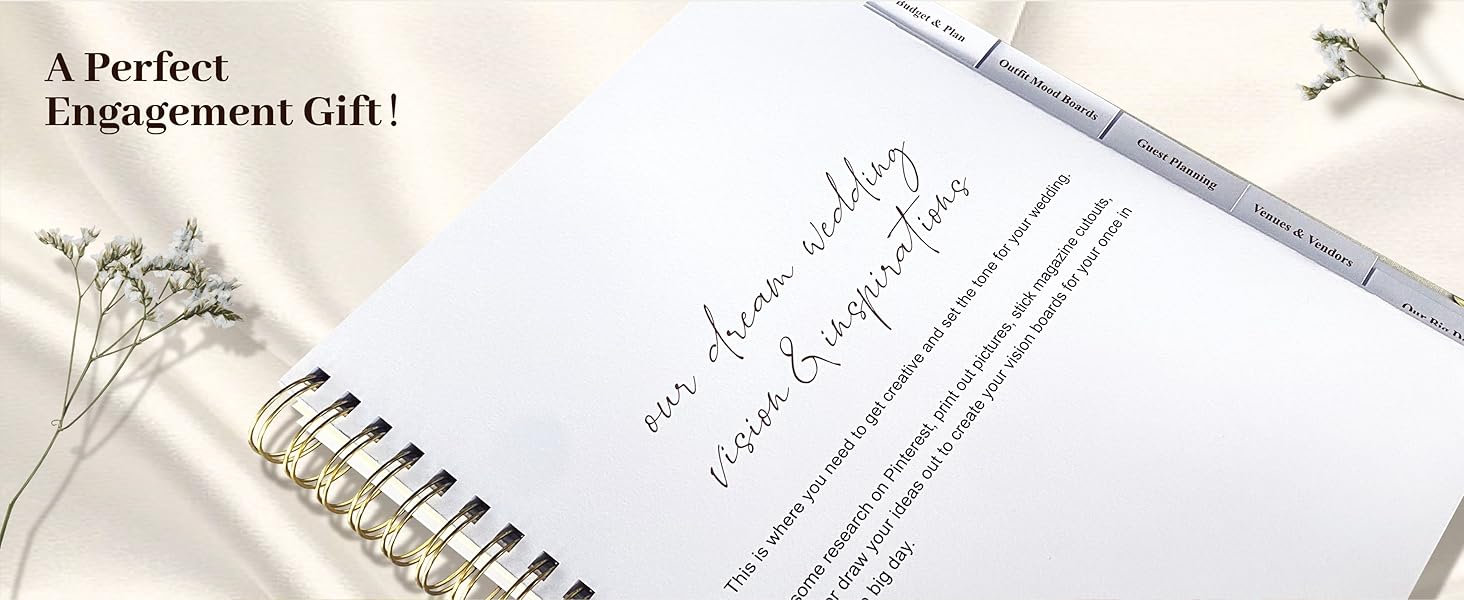 A Perfect
Engagement Gift!
Budget & Plan
Outfit Mood Boards
Guest Planning
Venues & Vendors
Our Big
our dream wedding
vision & inspirations
This is where you need to get creative and set the tone for your wedding.
some research on Pinterest, print out pictures, stick magazine cutouts,
or draw your ideas out to create your vision boards for your once in
big day.